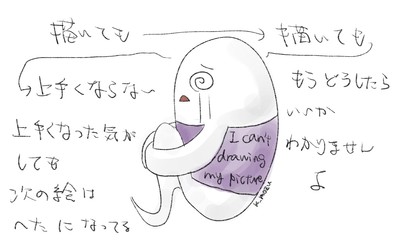 描いても → 描いても
上手くならな〜
上手くなった気が
しても
次の絵は
へたになってる
もうどうしたら
い〜か
わかりません
よ
I can't
drawing
my picture